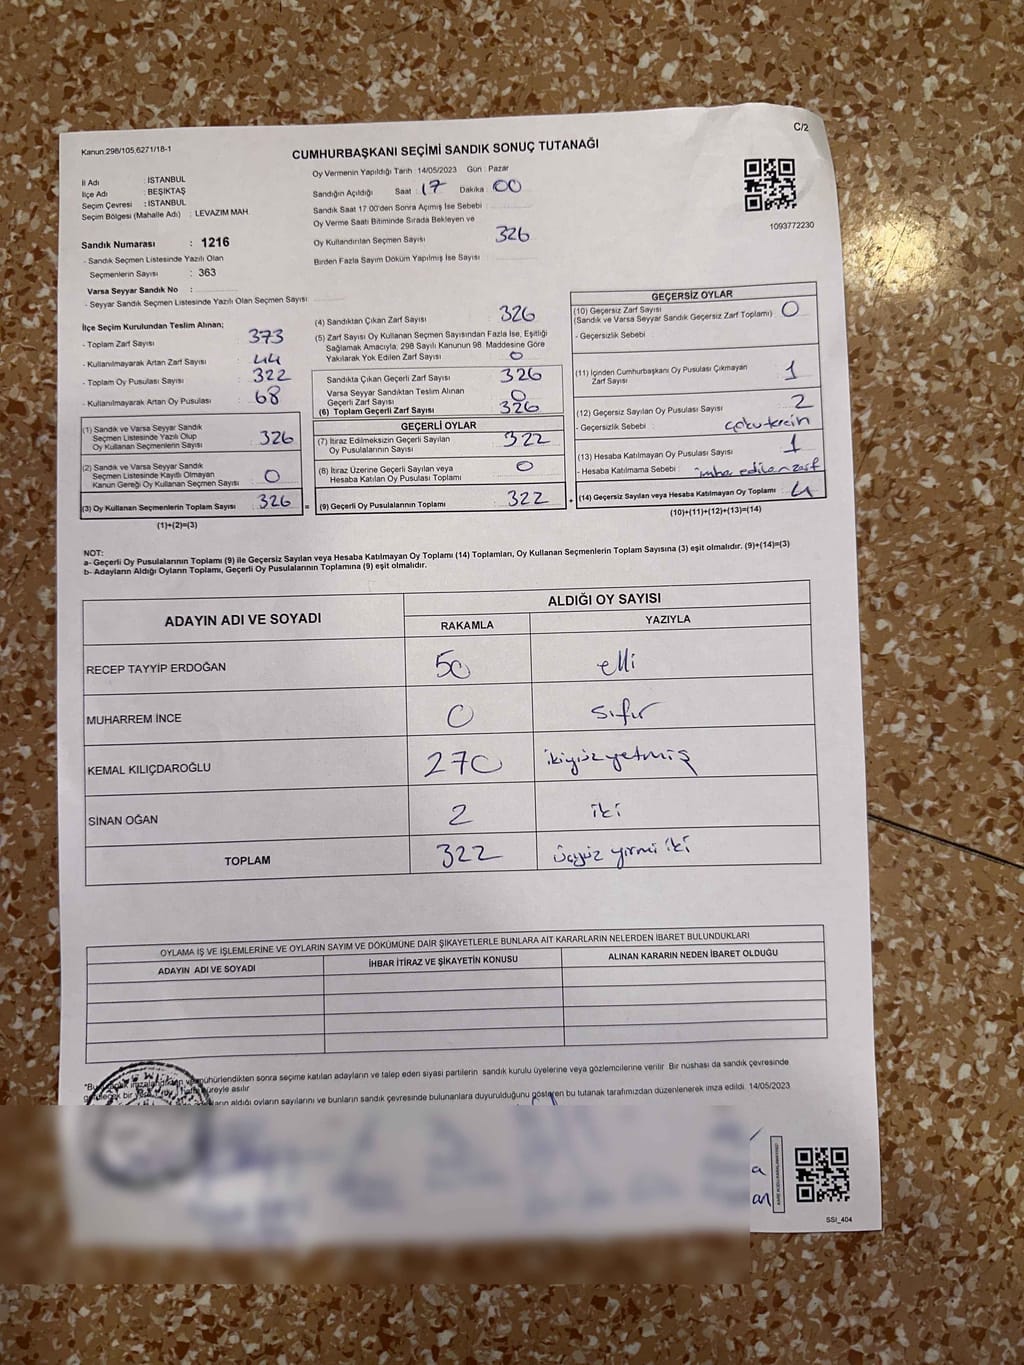 Kanun:298/105,6271/18-1
C/2
CUMHURBAŞKANI SEÇİMİ SANDIK SONUÇ TUTANAĞI
İl Adı : İSTANBUL
İlçe Adı : BEŞİKTAŞ
Seçim Çevresi : İSTANBUL
Seçim Bölgesi (Mahalle Adı) : LEVAZIM MAH.
Sandık Numarası : 1216
- Sandık Seçmen Listesinde Yazılı Olan
Seçmenlerin Sayısı : 363
Varsa Seyyar Sandık No :
- Seyyar Sandık Seçmen Listesinde Yazılı Olan Seçmen Sayısı
Oy Vermenin Yapıldığı Tarih : 14/05/2023 Gün : Pazar
Sandığın Açıldığı Saat : 17 Dakika : 00
Sandık Saat 17:00'den Sonra Açımış İse Sebebi :
Oy Verme Saati Bitiminde Sırada Bekleyen ve
Oy Kullandırılan Seçmen Sayısı 326
Birden Fazla Sayım Döküm Yapılmış İse Sayısı
1093772230
İlçe Seçim Kurulundan Teslim Alınan;
- Toplam Zarf Sayısı : 373
- Kullanılmayarak Artan Zarf Sayısı : 44
- Toplam Oy Pusulası Sayısı : 322
- Kullanılmayarak Artan Oy Pusulası : 68
(1) Sandık ve Varsa Seyyar Sandık
Seçmen Listesinde Yazılı Olup
Oy Kullanan Seçmenlerin Sayısı : 326
(2) Sandık ve Varsa Seyyar Sandık
Seçmen Listesinde Kayıtlı Olmayan
Kanun Gereği Oy Kullanan Seçmen Sayısı : 0
(3) Oy Kullanan Seçmenlerin Toplam Sayısı : 326
(1)+(2)=(3)
(4) Sandıktan Çıkan Zarf Sayısı 326
(5) Zarf Sayısı Oy Kullanan Seçmen Sayısından Fazla İse, Eşitliği
Sağlamak Amacıyla, 298 Sayılı Kanunun 98. Maddesine Göre
Yakılarak Yok Edilen Zarf Sayısı : 0
Sandıkta Çıkan Geçerli Zarf Sayısı : 326
Varsa Seyyar Sandıktan Teslim Alınan
Geçerli Zarf Sayısı : 0
(6) Toplam Geçerli Zarf Sayısı : 326
GEÇERLİ OYLAR
(7) İtiraz Edilmeksizin Geçerli Sayılan
Oy Pusulasının Sayısı : 322
(8) İtiraz Üzerine Geçerli Sayılan veya
Hesaba Katılan Oy Pusulası Toplamı : 0
= (9) Geçerli Oy Pusulalarının Toplamı : 322 +
GEÇERSİZ OYLAR
(10) Geçersiz Zarf Sayısı
(Sandık ve Varsa Seyyar Sandık Geçersiz Zarf Toplamı) : 0
- Geçersizlik Sebebi :
(11) İçinden Cumhurbaşkanı Oy Pusulası Çıkmayan
Zarf Sayısı : 1
(12) Geçersiz Sayılan Oy Pusulası Sayısı : 2
- Geçersizlik Sebebi : çoklu tercih
(13) Hesaba Katılmayan Oy Pusulası Sayısı : 1
- Hesaba Katılmama Sebebi : imha edilen zarf
(14) Geçersiz Sayılan veya Hesaba Katılmayan Oy Toplamı : 4
(10)+(11)+(12)+(13)=(14)
NOT:
a- Geçerli Oy Pusulalarının Toplamı (9) ile Geçersiz Sayılan veya Hesaba Katılmayan Oy Toplamı (14) Toplamları, Oy Kullanan Seçmenlerin Toplam Sayısına (3) eşit olmalıdır. (9)+(14)=(3)
b- Adayların Aldığı Oyların Toplamı, Geçerli Oy Pusulalarının Toplamına (9) eşit olmalıdır.
ADAYIN ADI VE SOYADI
ALDIĞI OY SAYISI
RAKAMLA YAZIYLA
RECEP TAYYİP ERDOĞAN 50 elli
MUHARREM İNCE 0 sıfır
KEMAL KILIÇDAROĞLU 270 ikiyüzyetmiş
SİNAN OĞAN 2 iki
TOPLAM 322 üçyüz yirmi iki
OYLAMA İŞ VE İŞLEMLERİNE VE OYLARIN SAYIM VE DÖKÜMÜNE DAİR ŞİKAYETLERLE BUNLARA AİT KARARLARIN NELERDEN İBARET BULUNDUKLARI
ADAYIN ADI VE SOYADI İHBAR İTİRAZ VE ŞİKAYETİN KONUSU ALINAN KARARIN NEDEN İBARET OLDUĞU
mühürlendikten sonra seçime katılan adayların ve talep eden siyasi partilerin sandık kurulu üyelerine veya gözlemcilerine verilir. Bir nüshası da sandık çevresinde
bir süreyle asılır
aldığı oyların sayılarını ve bunların sandık çevresinde bulunanlara duyurulduğunu gösteren bu tutanak tarafımızdan düzenlenerek imza edildi. 14/05/2023
SSI_404